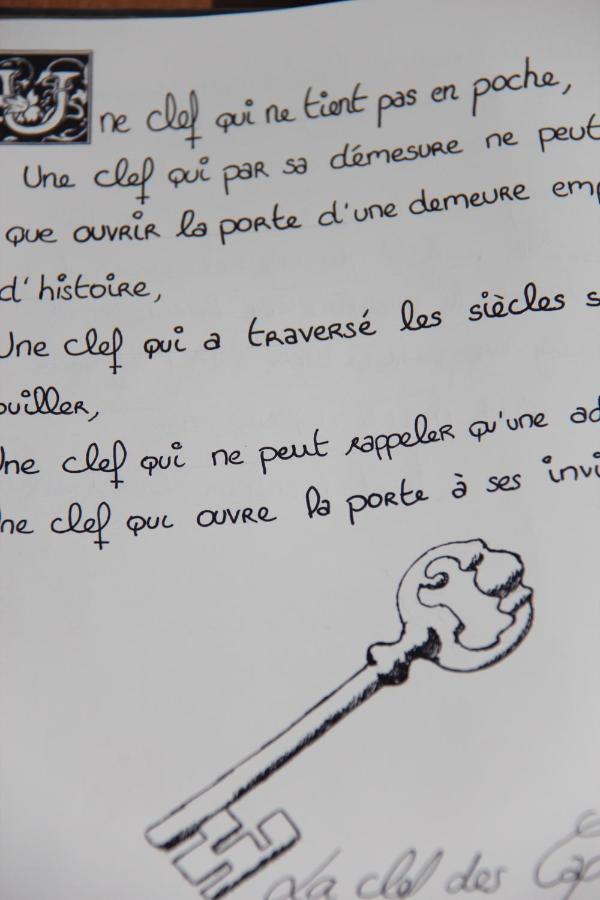 Une clef qui ne tient pas en poche,
Une clef qui par sa démesure ne peut
que ouvrir la porte d'une demeure emp
d'histoire,
Une clef qui a traversé les siècles s
ouiller,
Une clef qui ne peut rappeler qu'une ad
Une clef qui ouvre la porte à ses invi
La clef des Cap